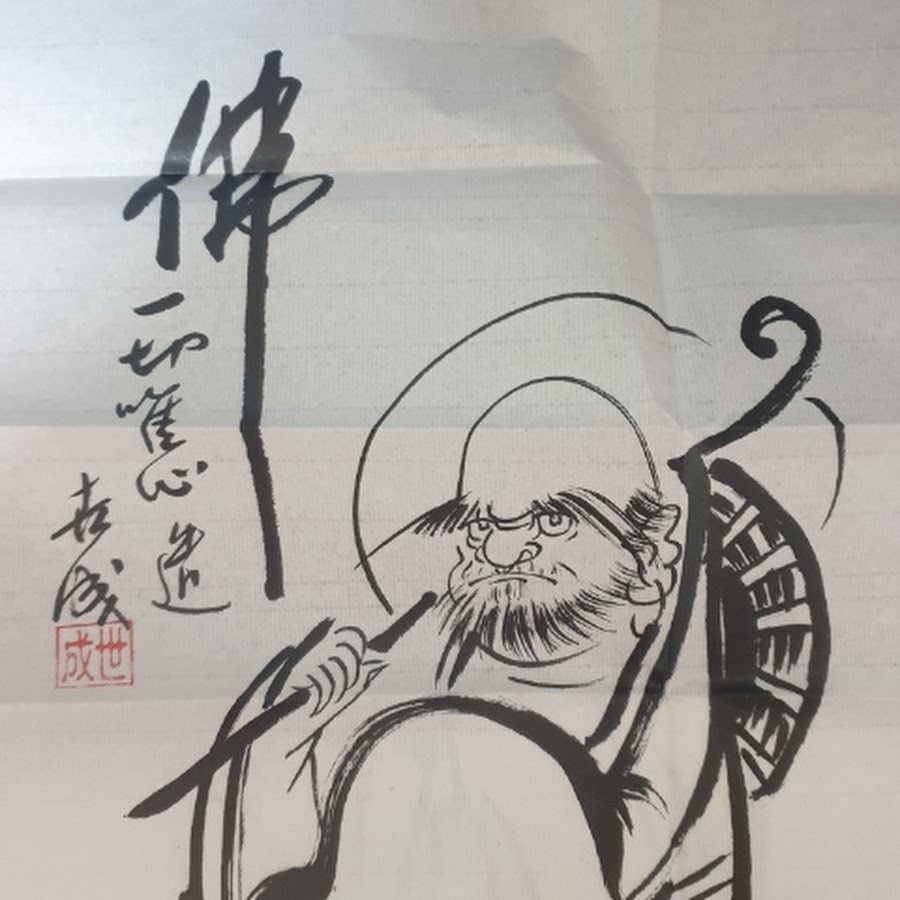 佛
一切唯心造
世成
世成